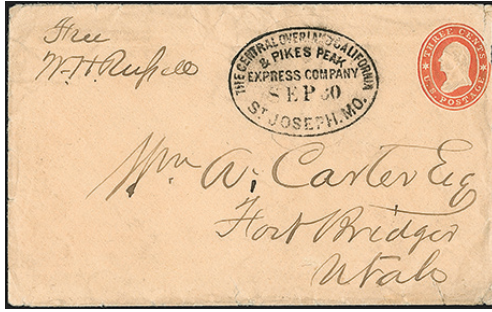 Free
W. H. Russell
THE CENTRAL OVERLAND CALIFORNIA
& PIKES PEAK
EXPRESS COMPANY
SEP 30
ST JOSEPH, MO.
THREE CENTS
U.S. POSTAGE
Wm A. Carter Esq
Fort Bridger
Utah